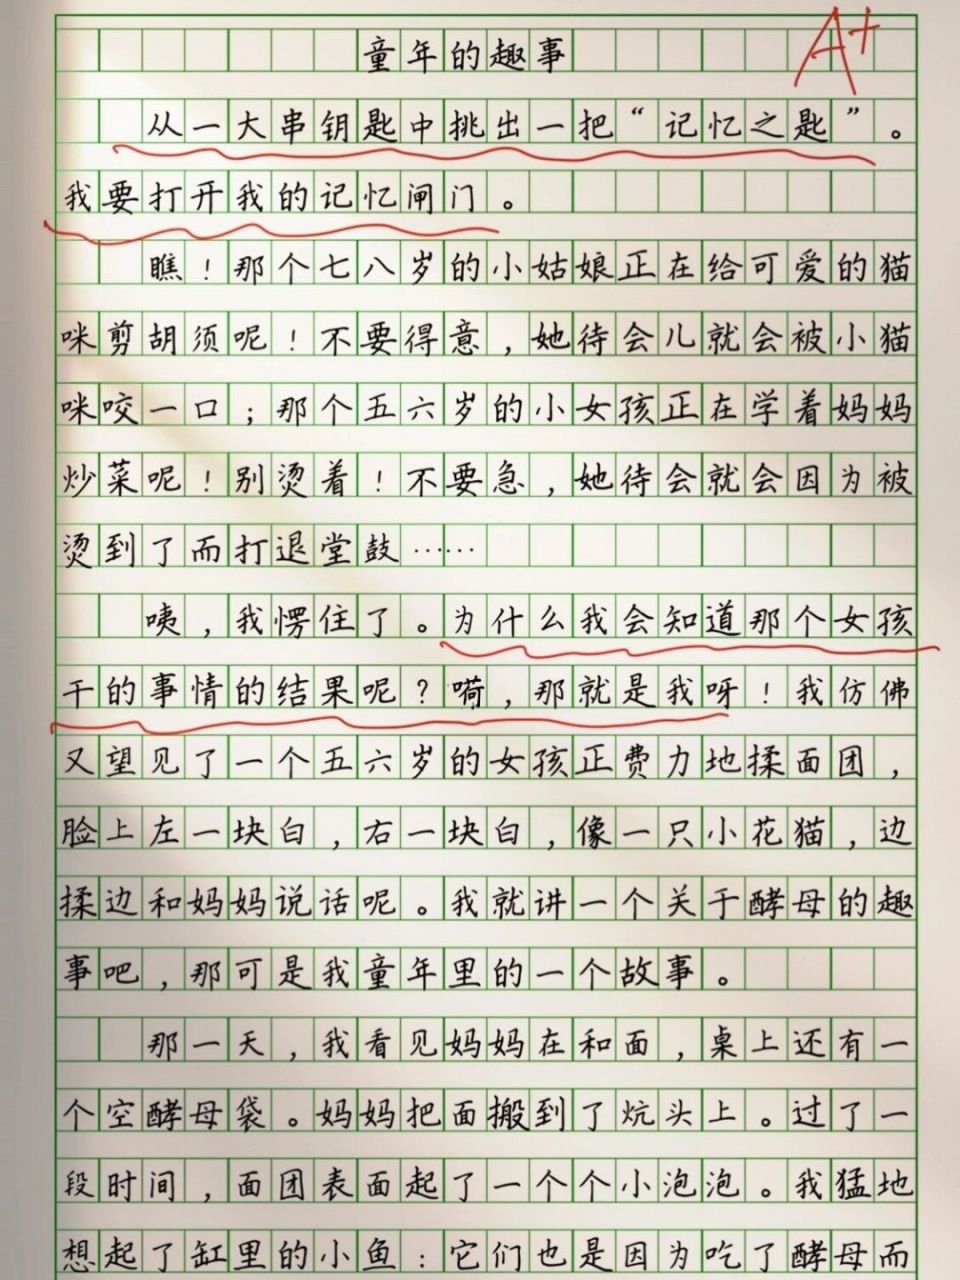 A+
童年的趣事
从一大串钥匙中挑出一把“记忆之匙”。
我要打开我的记忆闸门。
瞧！那个七八岁的小姑娘正在给可爱的猫
咪剪胡须呢！不要得意，她待会儿就会被小猫
咪咬一口；那个五六岁的小女孩正在学着妈妈
炒菜呢！别烫着！不要急，她待会就会因为被
烫到了而打退堂鼓……
咦，我愣住了。为什么我会知道那个女孩
干的事情的结果呢？嗬，那就是我呀！我仿佛
又望见了一个五六岁的女孩正费力地揉面团，
脸上左一块白，右一块白，像一只小花猫，边
揉边和妈妈说话呢。我就讲一个关于酵母的趣
事吧，那可是我童年里的一个故事。
那一天，我看见妈妈在和面，桌上还有一
个空酵母袋。妈妈把面搬到了炕头上。过了一
段时间，面团表面起了一个个小泡泡。我猛地
想起了缸里的小鱼：它们也是因为吃了酵母而